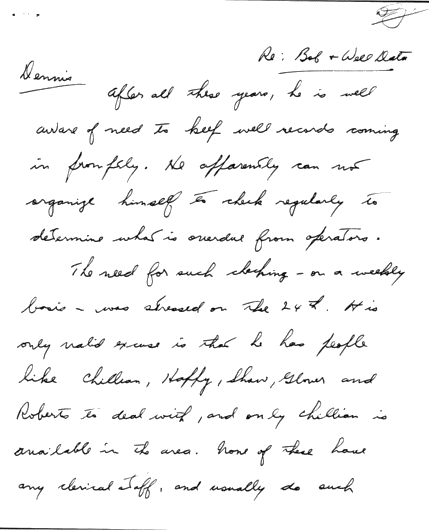 Re: Bob + Well Data
Dennis
After all these years, he is well
aware of need to keep well records coming
in promptly. He apparently can not
organize himself to check regularly to
determine what is overdue from operators.
The need for such checking - on a weekly
basis - was stressed on the 24th. His
only valid excuse is that he has people
like Chillian, Happy, Shaw, Glover and
Roberts to deal with, and only Chillian is
available in the area. None of these have
any clerical staff, and usually do such